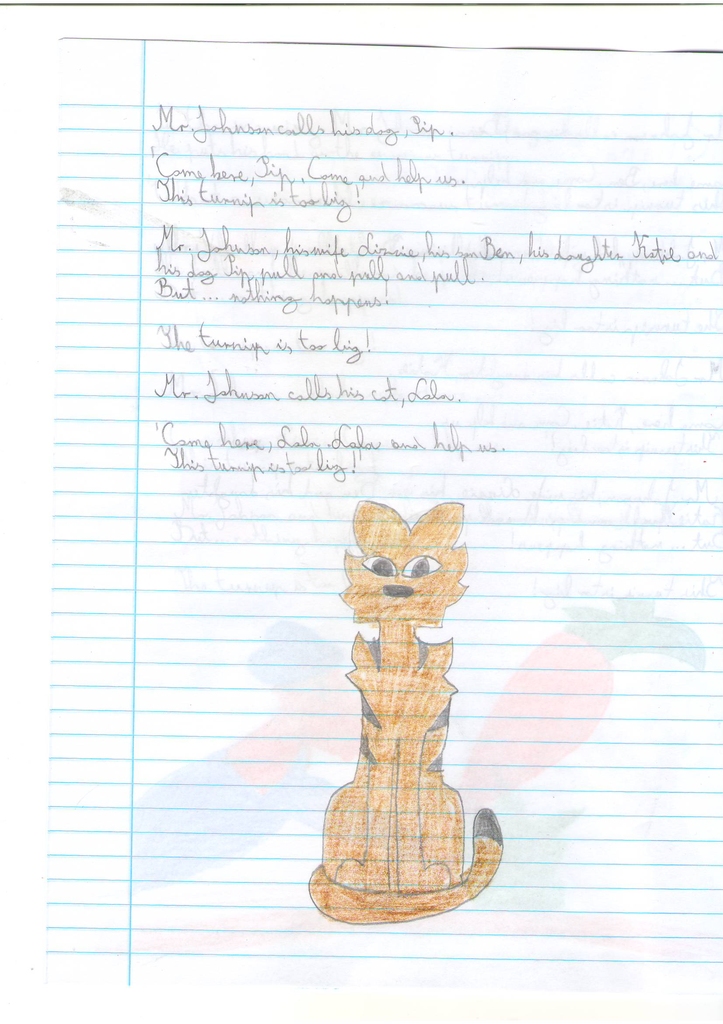 Mr. Johnson calls his dog, Pip.
'Come here, Pip. Come and help us.
This turnip is too big!'
Mr. Johnson, his wife Lizzie, his son Ben, his daughter Katie and
his dog Pip, pull and pull and pull.
But... nothing happens.
The turnip is too big!
Mr. Johnson calls his cat, Lala.
'Come here, Lala. Lala and help us.
This turnip is too big!'